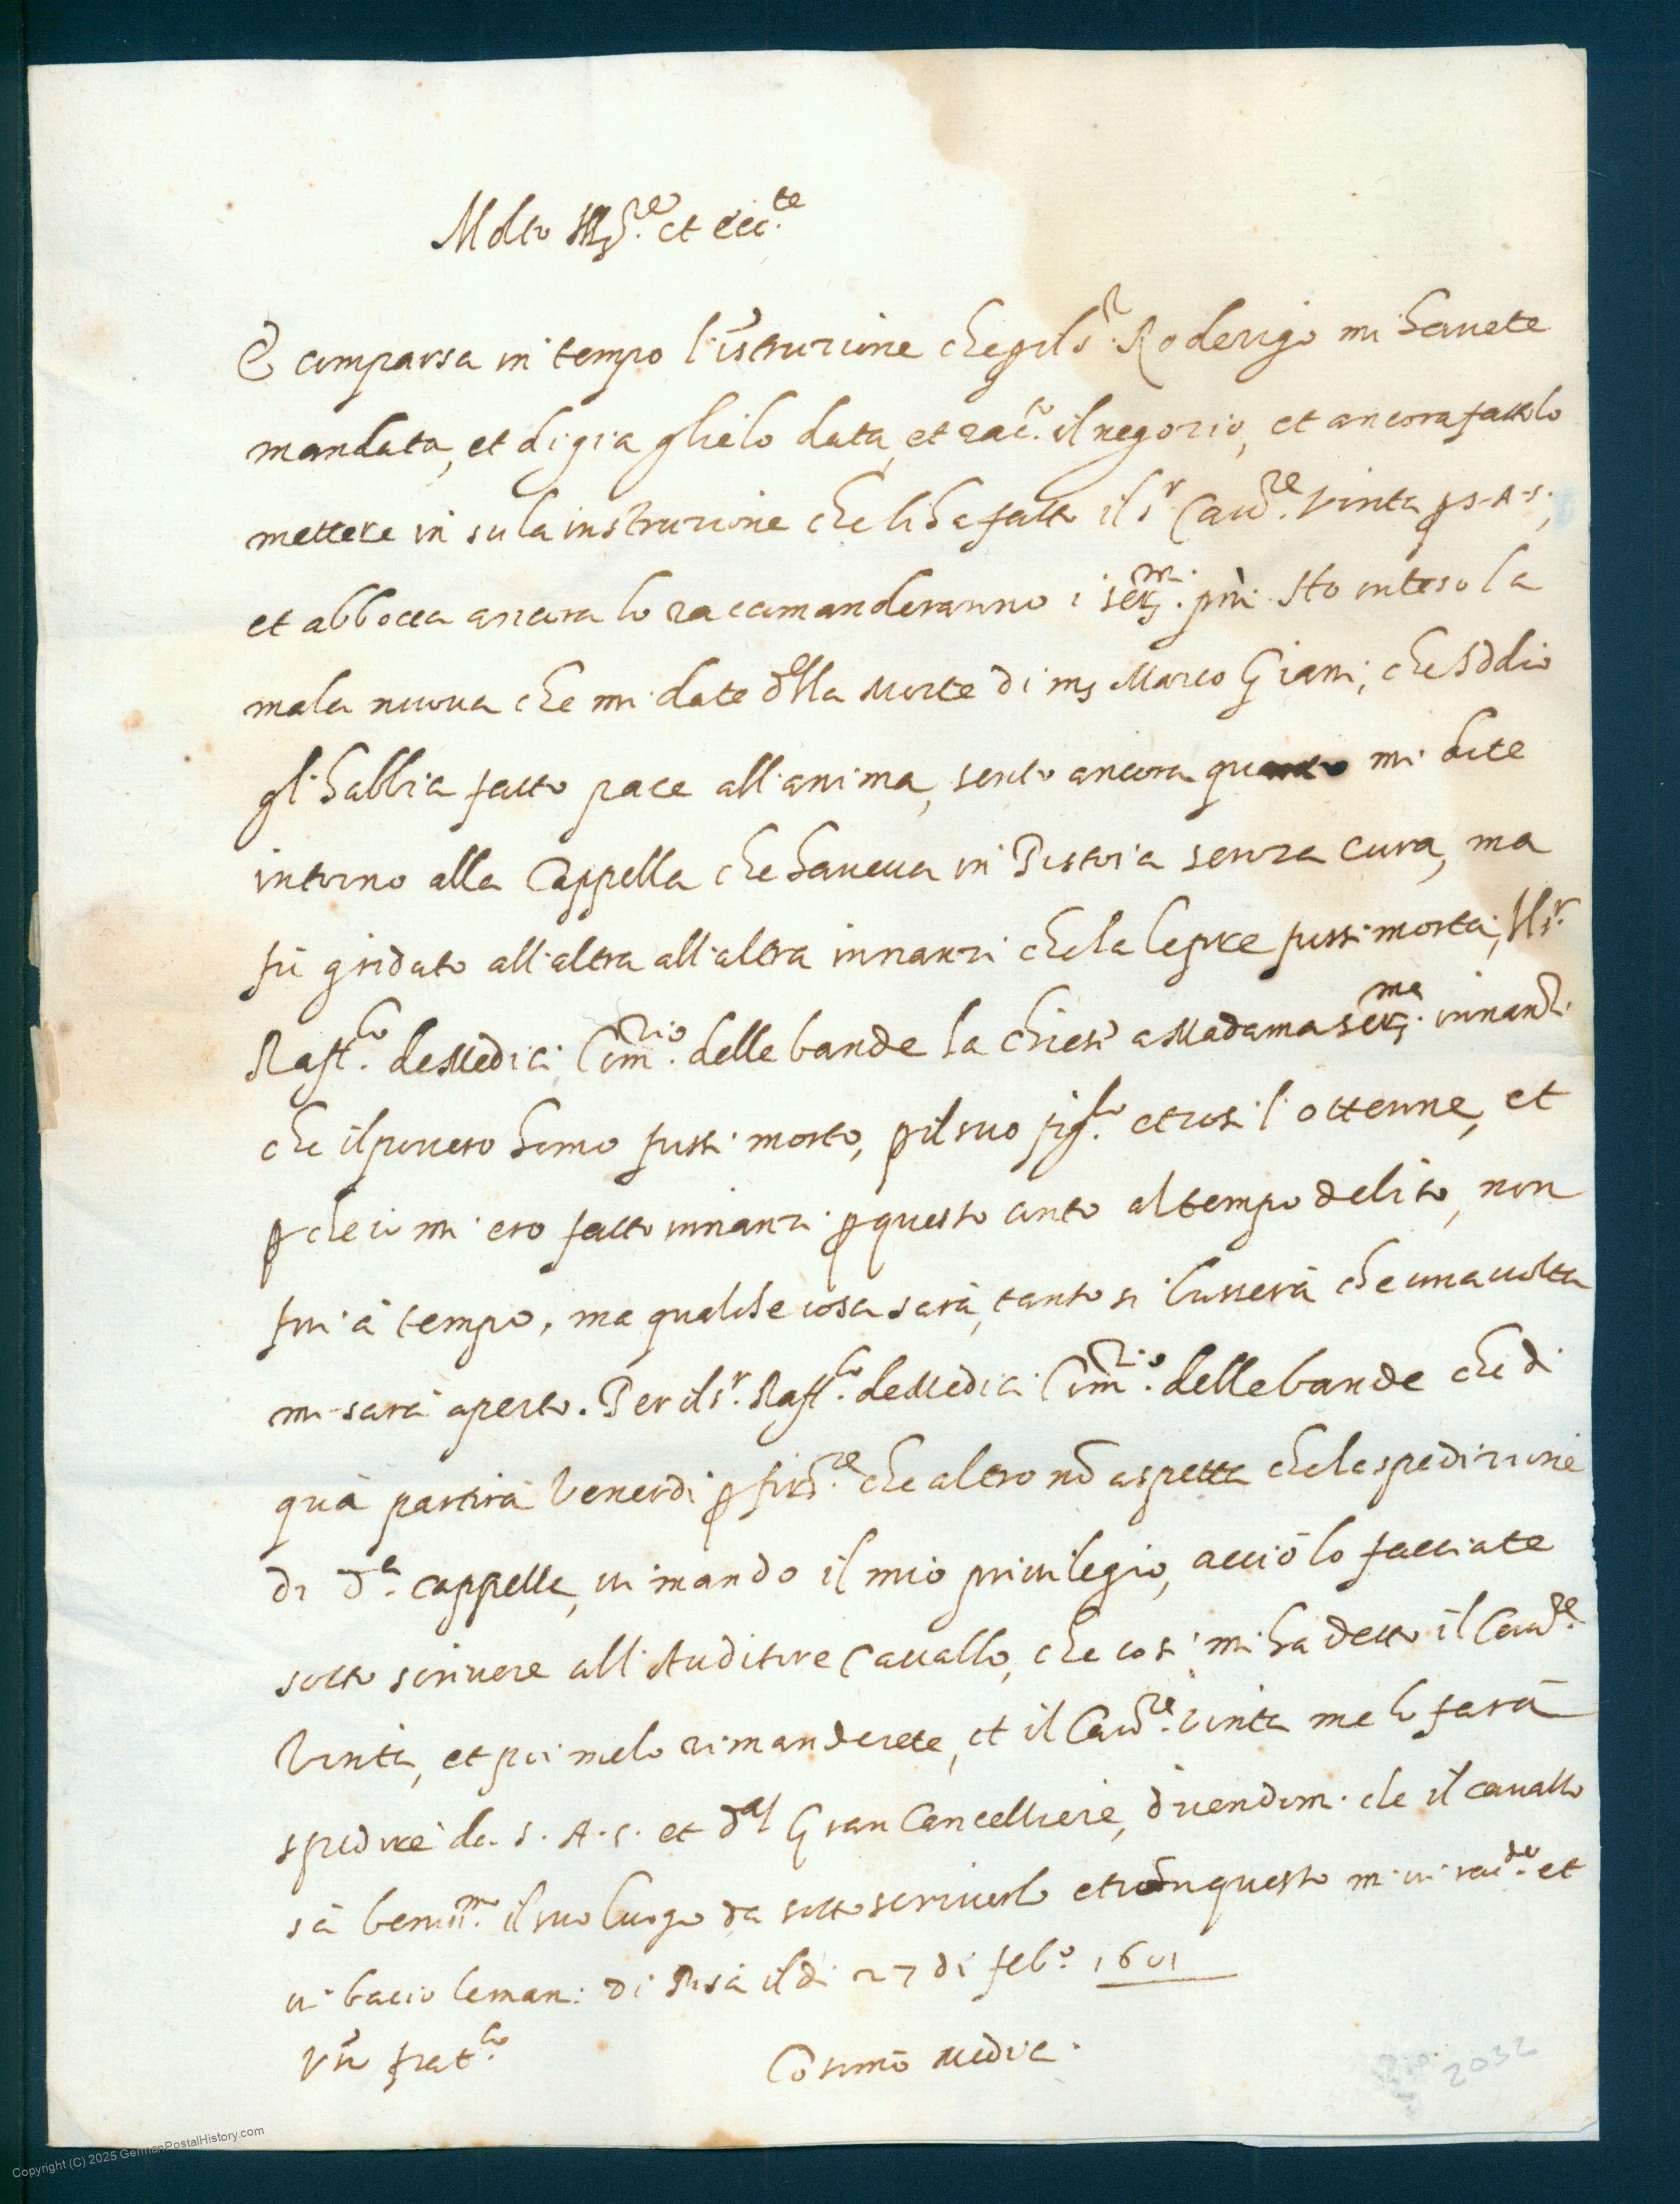 Molto Mag.re et ecc.te
È comparsa in tempo l'istruzione che p il s.r Roderigo mi havete
mandata, et di gia glielo data, et rac.to il negozio, et ancora fattolo
mettere in su la instruzione che li ha fatto il s.r Cav.re Vinta p S. A. S.,
et abbocca ancora lo raccomanderanno i ser.mi p.ni. Ho inteso la
mala nuova che mi date della morte di ms Marco Giani, che Iddio
gl'habbia fatto pace all'anima, sento ancora quanto mi dite
intorno alla Cappella che haveva in Pistoia senza cura, ma
fù gridato all'altra all'altra innanzi che la lepre fussi morta, Il s.r
Raff.lo de Medici Com.rio delle bande la chiese a Madama ser.ma innanzi
che il povero homo fussi morto, p il suo fig.lo et così l'ottenne, et
p che io mi ero fatto innanzi p questo conto al tempo delito, non
fui à tempo, ma qualche cosa sarà, tanto si busserà che una volta
mi sarà aperto. Per il s.r Raff.lo de Medici Com.rio delle bande che di
quà partirà Venerdi p fir.ze che altro nō aspetta che la spedizione
di d.a cappella, vi mando il mio privilegio, acciò lo facciate
sotto scrivere all'Auditore Cavallo, che così mi ha detto il Cav.re
Vinta, et poi melo rimanderete, et il Cav.re Vinta me lo farà
spedire da S. A. S. et dal Gran Cancelliere, dicendomi che il cavallo
sà beniss.mo il suo luogo da sottoscriverlo et con questo mi vi rac.do et
vi bacio le mani: di Pisa il dì 27 di feb.o 1601
V.ro frat.lo
Cosimo Medici
2032
Copyright (C) 2025 GermanPostalHistory.com